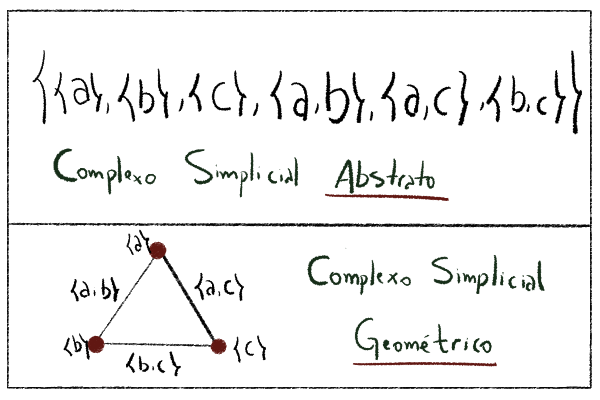 {{a}, {b}, {c}, {a,b}, {a,c}, {b,c}}
Complexo Simplicial Abstrato
{a}
{a,b} {a,c}
Complexo Simplicial
{b} {c}
Geométrico
{b,c}